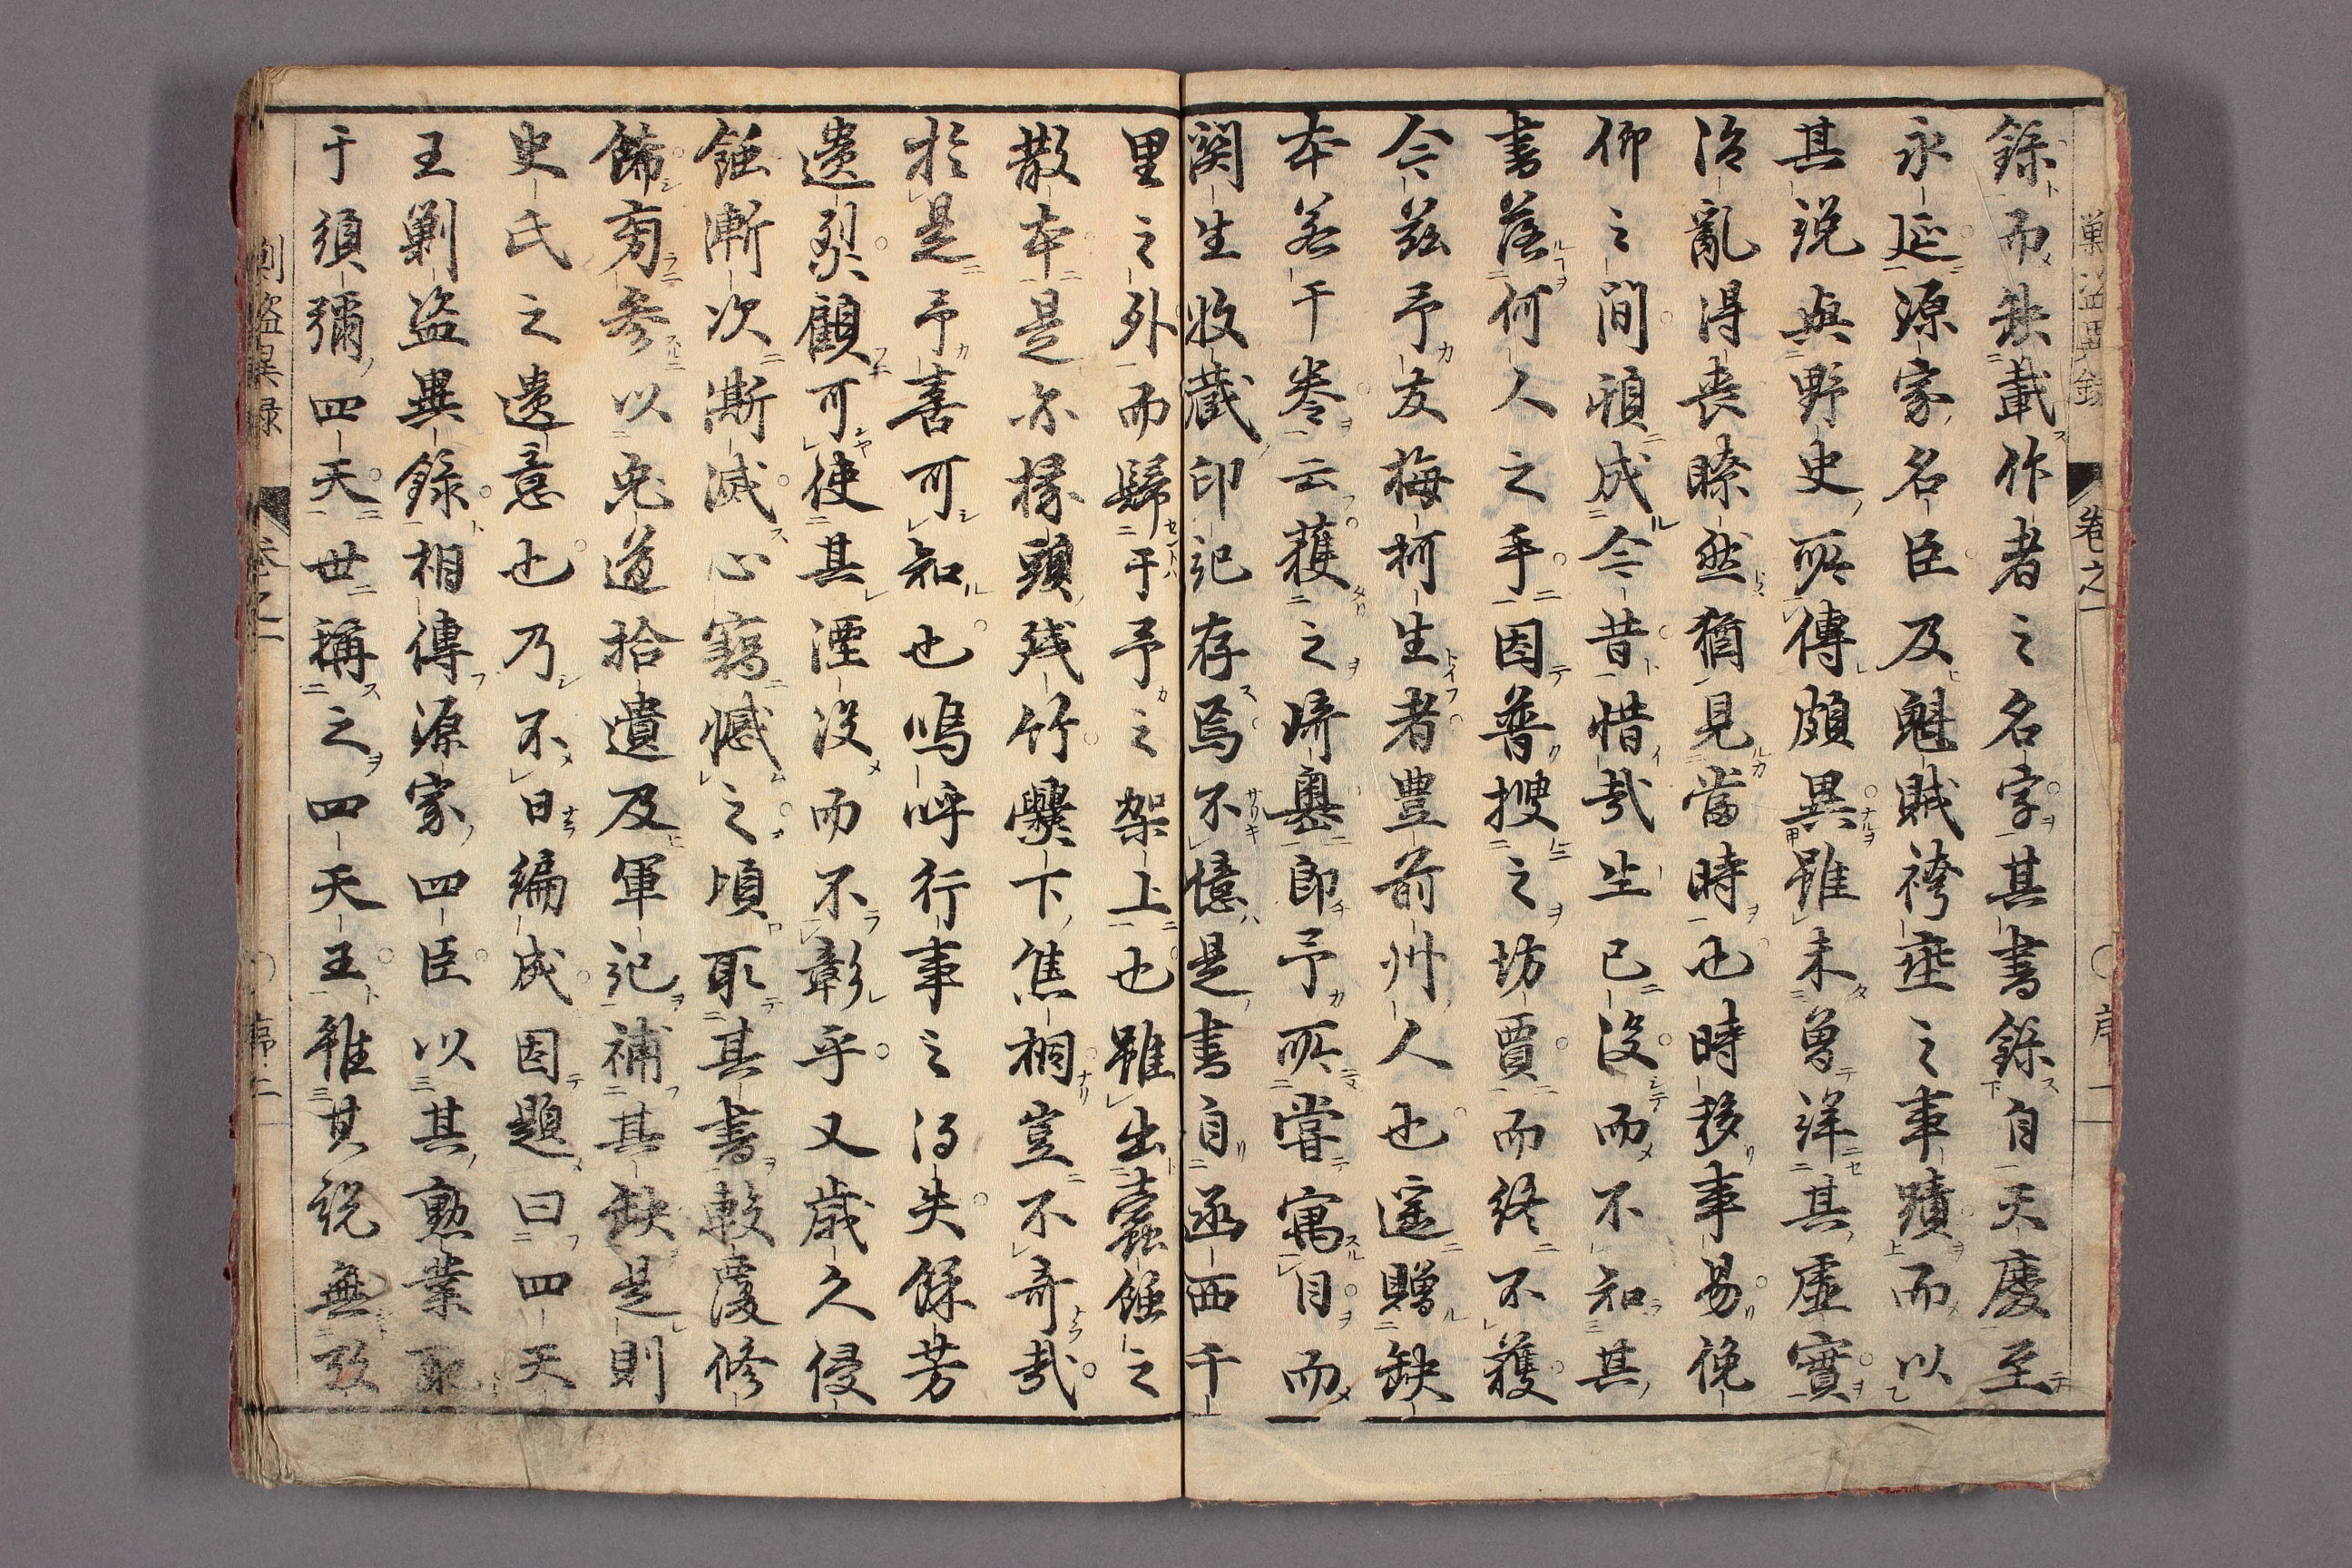 錄而缺載作者之名字其書錄自天慶至
永延源家名臣及魁賊袴垂之事蹟而以
其說與野史所傳頗異雖未曾詳其虛實
治亂得喪瞭然猶見當時也時移事易俛
仰之間頓成今昔惜哉生已沒而不知其
書落何人之手因普搜之坊賈而終不獲
今茲予友梅柯生者豊前州人也遥贈缺
本若干卷云獲之崎嶴即予所嘗寓目而
関生收藏印記存焉不憶是書自函西千
里之外而歸于予之架上也雖出蠹蝕之
散本是亦椽頭殘竹爨下焦桐豈不奇哉
於是予喜可知也嗚呼行事之得失餘芳
遺烈顧可使其湮沒而不彰乎又歲久侵
蝕漸次澌滅心竊憾之頃取其書較覆修
飾旁參以兎道拾遺及軍記補其缺是則
史氏之遺意也乃不日編成因題曰四天
王剿盜異錄相傳源家四臣以其勲業耴
于須彌四天世稱之四天王雖其說無攷
巢盜異錄 卷之一 ○序一
剿盜異録 卷之一 ○序二